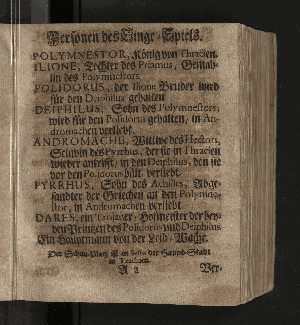 Personen des Singe-Spiels.
POLYMNESTOR, König von Thracien.
ILIONE, Tochter des Priamus, Gemah-
lin des Polymnestors.
POLIDORUS, der Ilione Bruder wird
für den Deiphilus gehalten
DEIPHILUS, Sohn des Polymnestors,
wird für den Polidorus gehalten, in An-
dromachen verliebt.
ANDROMACHE, Wittwe des Hectors,
Sclavin des Pyrrhus, der sie in Thracien
wieder antrifft, in den Deiphilus, den sie
vor den Polidorus hält, verliebt.
PYRRHUS, Sohn des Achilles, Abge-
sandter der Griechen an den Polymne-
stor, in Andromachen verliebt.
DARES, ein Trojaner, Hofmeister der bey-
den Printzen des Polidorus und Deiphilus
Ein Hauptmann von der Leib-Wache.
Der Schau-Platz ist in der Haupt-Stadt
in Thracien.
A 2 Ver-